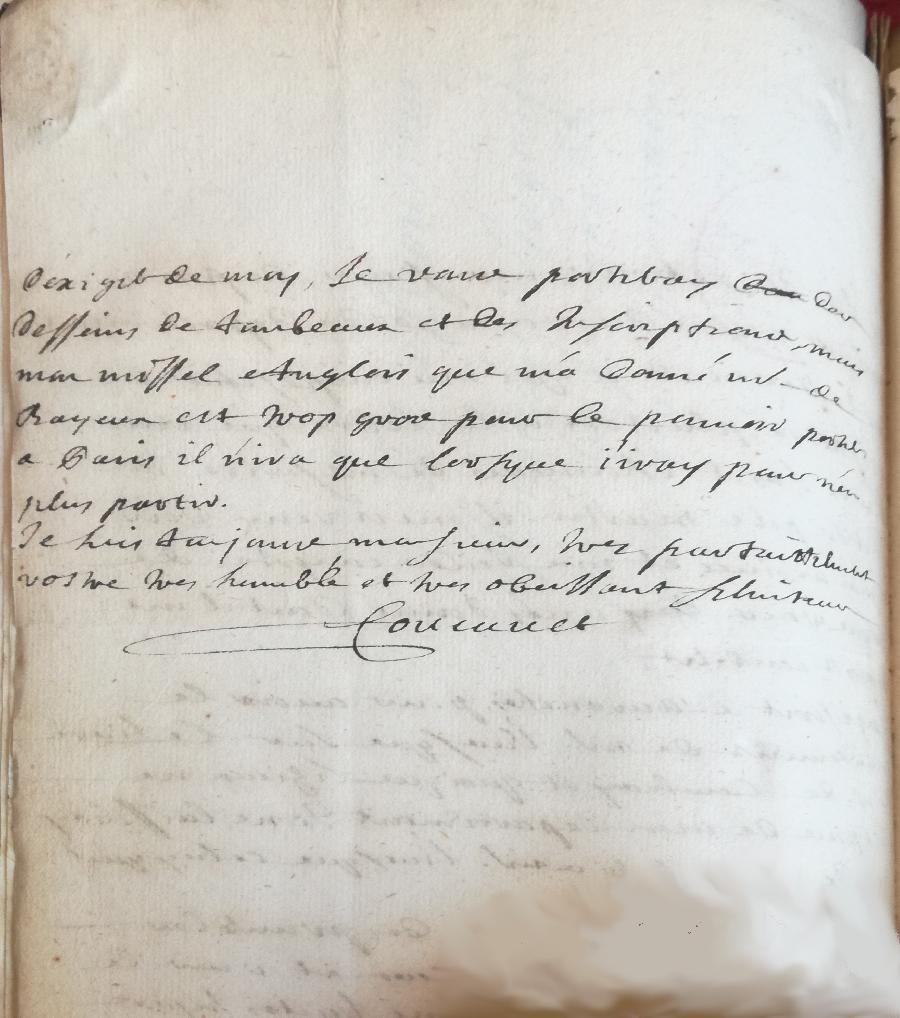 d'exigib de moy, Je vous porteray des
desseins de tombeaux et des Inscriptions, mais
mon missel Anglois que m'a donné mr de
Bayeux est trop gros pour le pouvoir porter
a Paris il n'ira que lorsque j'iray pour n'en
plus partir.
Je suis toujours monsieur, tres parfaittement
vostre tres humble et tres obeissant serviteur
Foucault